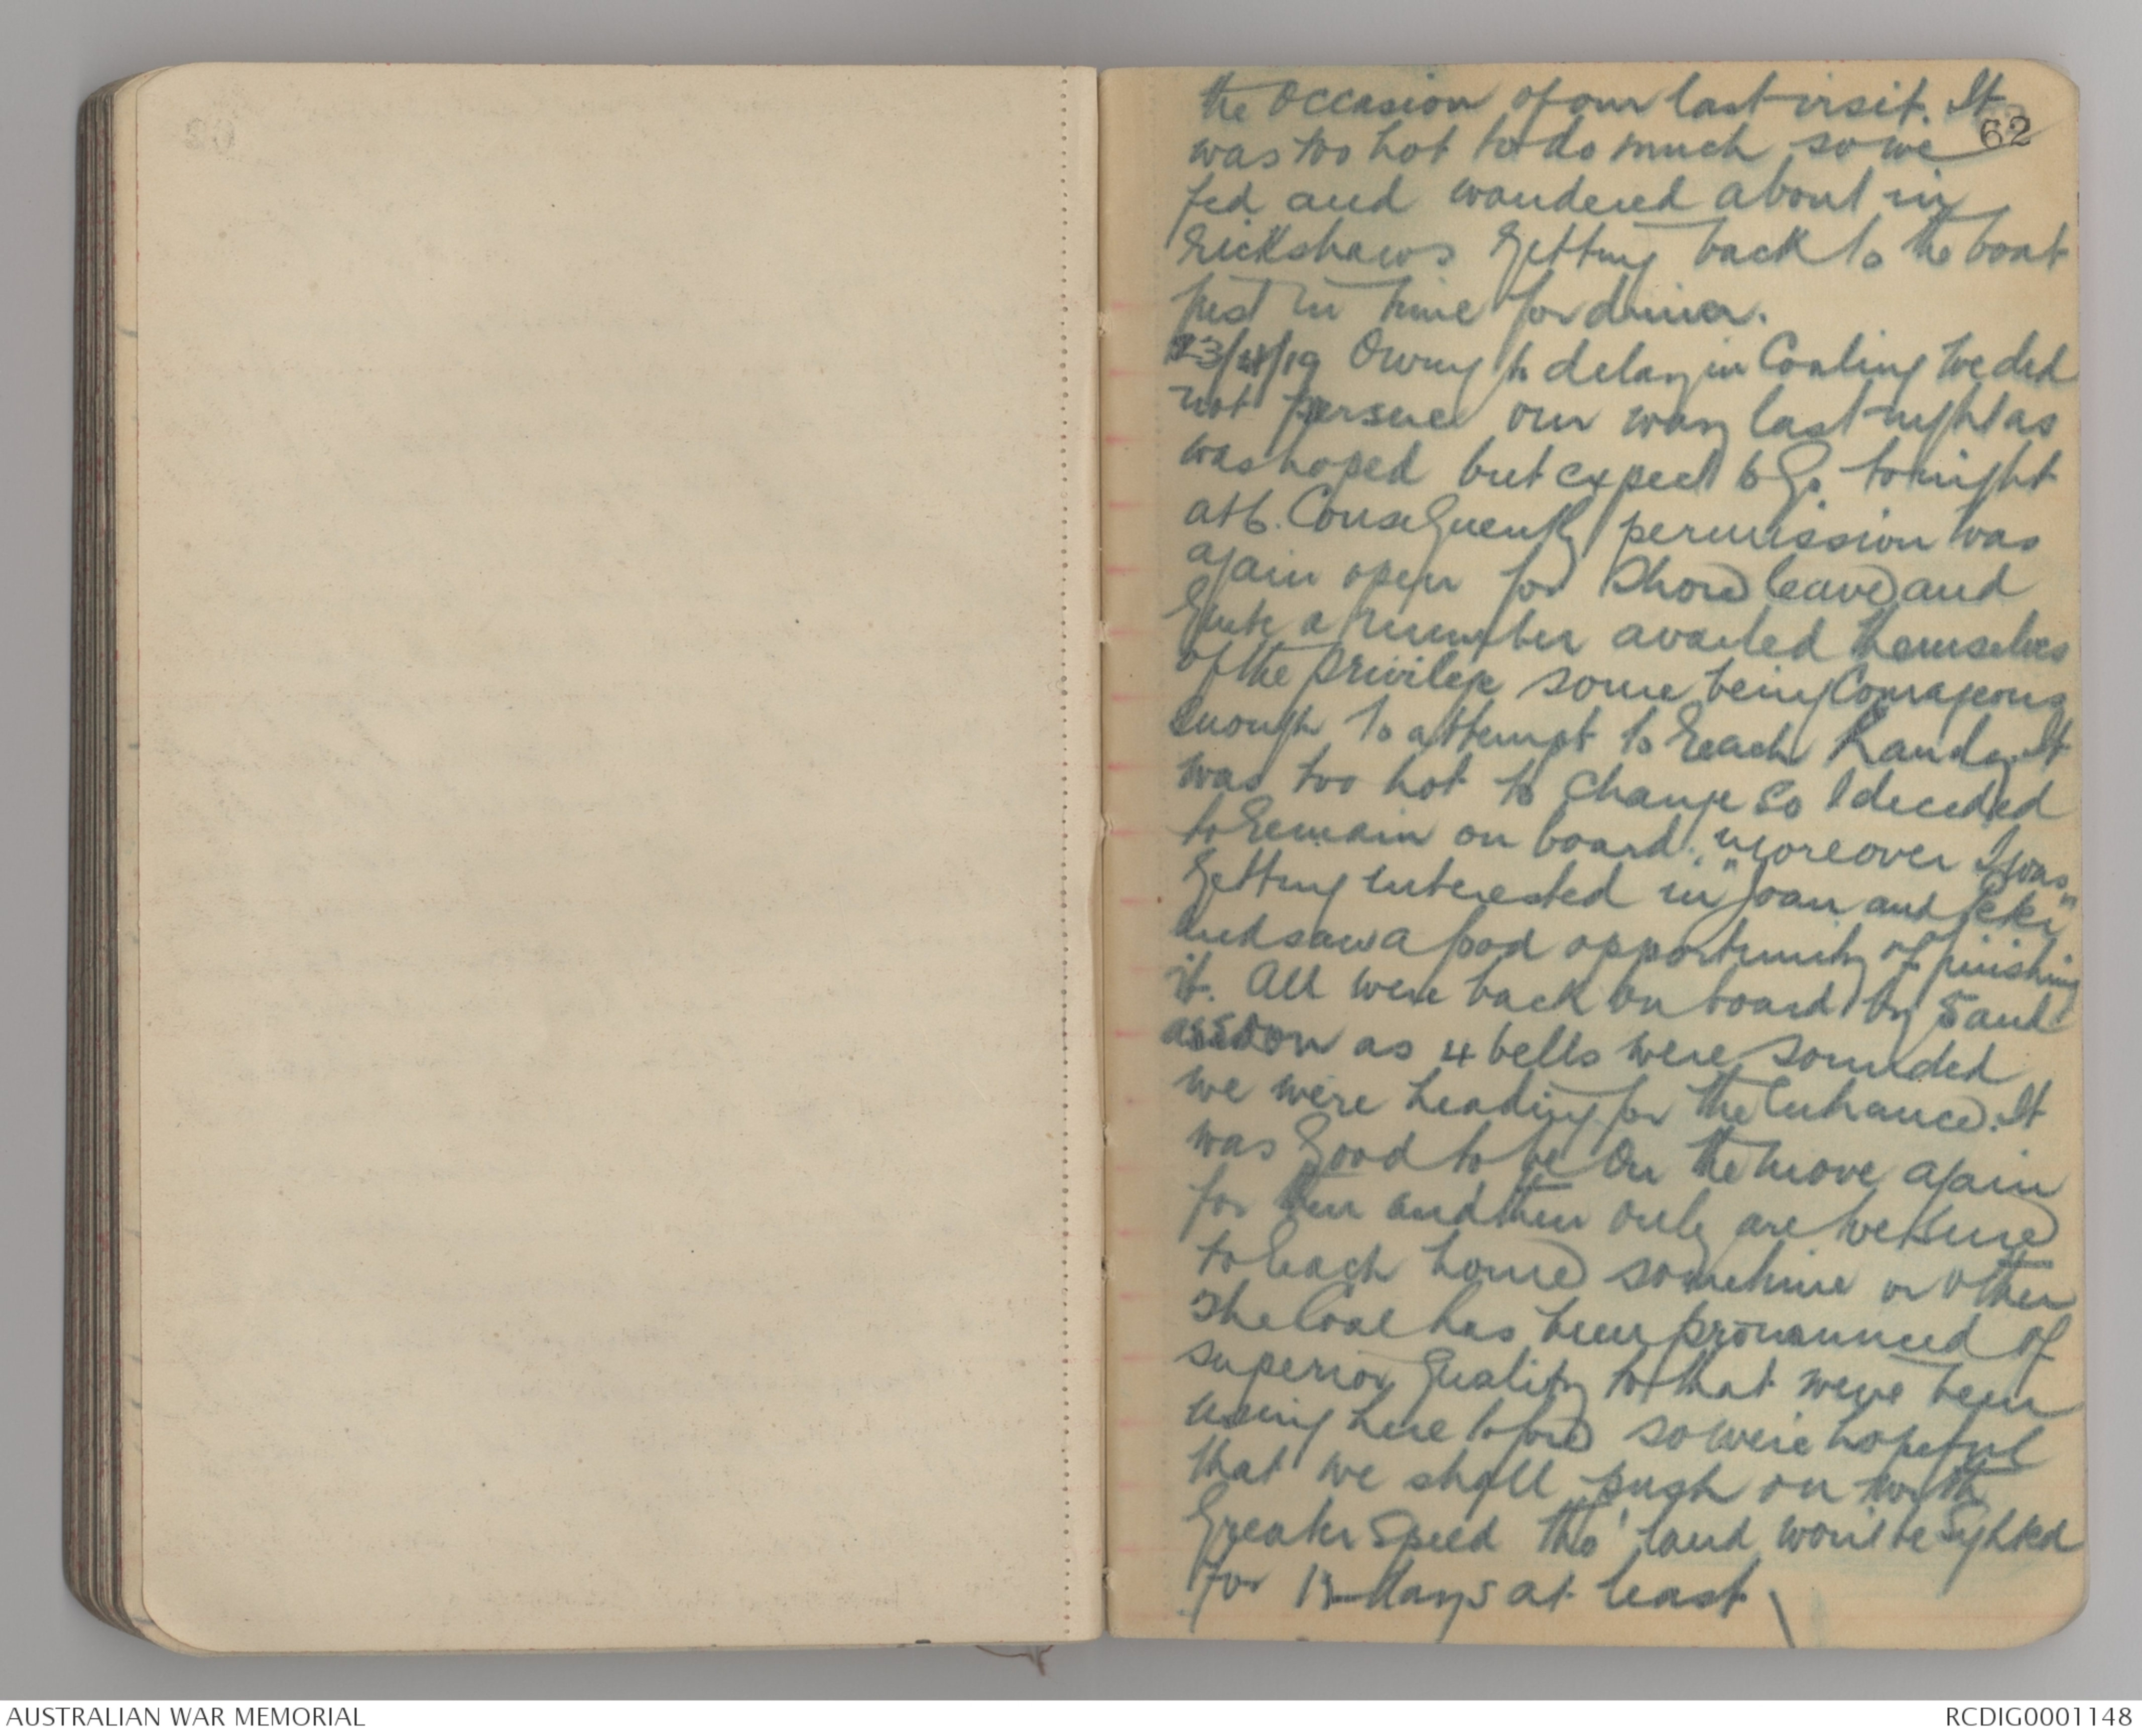 the occasion of our last visit. It
62
was too hot to do much so we
fed and wandered about in
rickshaws getting back to the boat
just in time for dinner.
23/ /19 Owing to delay in Coaling we did
not persue our way last night as
was hoped but expect to go tonight
at 6. Consequently permission was
again open for Shore leave and
quite a number availed themselves
of the privilege some being Courageous
enough to attempt to reach Kandy. It
was too hot to change so I decided
to remain on board, moreover I was
getting interested in "Joan and Peter"
and saw a good opportunity of finishing
it. All were back on board by 5 and
as soon as 4 bells were sounded
we were heading for the Entrance. It
was good to be on the move again
for then and then only are we sure
to reach home sometime or other
The Coal has been pronounced of
superior quality to that we've been
using heretofore so we're hopeful
that we shall push on with
greater speed tho' land won't be sighted
for days at least
AUSTRALIAN WAR MEMORIAL
RCDIG0001148